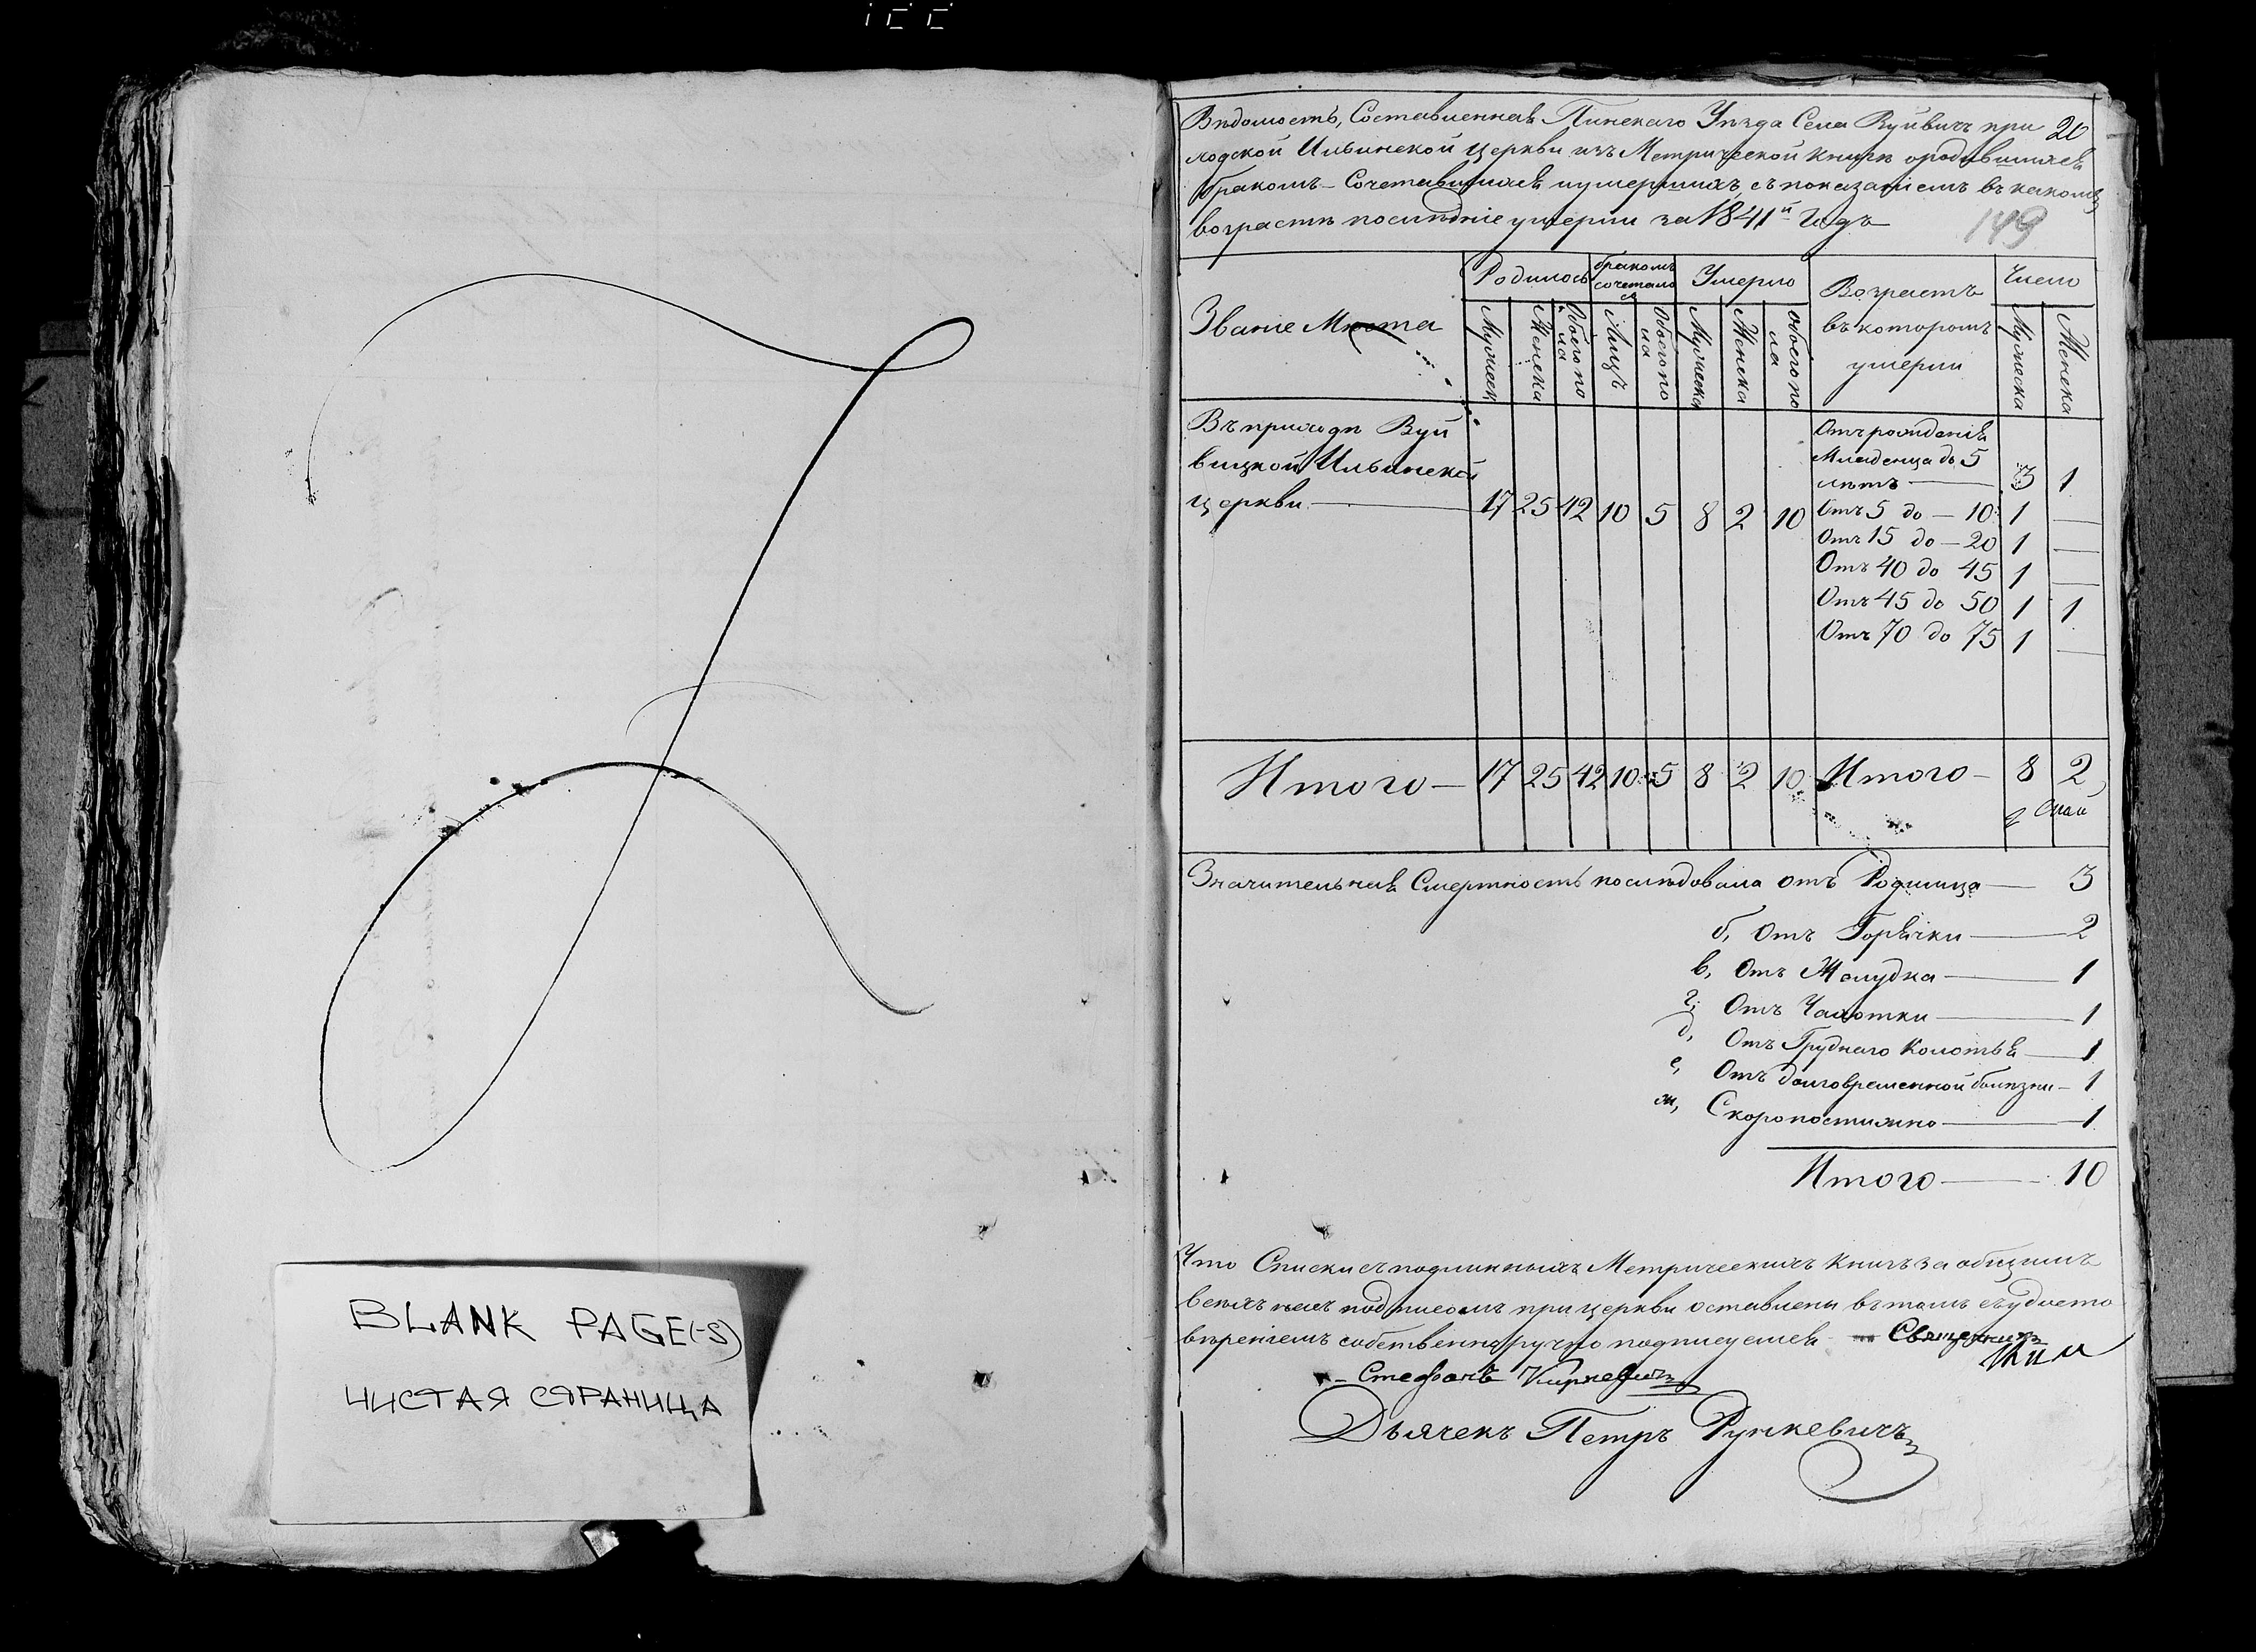 BLANK PAGE(-S)
ЧИСТАЯ СТРАНИЦА
Вѣдомость, Составленная Пинскаго Уѣзда Села Вуйвичъ при 20
ходской Ильинской Церкви изъ Метрической Книги о родившихся
бракомъ-Сочетавшихся и умершихъ, съ показаніемъ въ какомъ
возрастѣ послѣдніе умерли за 1841й Годъ
149
Званіе Мѣста
Родилось
бракомъ сочеталося
Умерло
Возрастъ въ которомъ умерли
Число
Мужеск
Женска
Обоего пола
Лицъ
Обоего пола
Мужеска
Женска
Обоего пола
Мужеска
Женска
Въ приходѣ Вуй
вицкой Ильинской
церкви 17 25 42 10 5 8 2 10
Отъ рожденія
Младенца до 5
лѣтъ 3 1
Отъ 5 до — 10 1 —
Отъ 15 до — 20 1 —
Отъ 40 до 45 1 —
Отъ 45 до 50 1 1
Отъ 70 до 75 1 —
Итого — 17 25 42 10 5 8 2 10 Итого — 8 2
Значительная Смертность послѣдовала отъ Родимца — 3
б, Отъ Горячки — 2
в, Отъ Желудка — 1
г, Отъ Чахотки — 1
д, Отъ Груднаго Колотья — 1
е, Отъ долговременной болѣзни — 1
ж, Скоропостижно — 1
Итого — 10
Что Списки съ подлинныхъ Метрическихъ Книгъ за общимъ
всѣхъ насъ подписомъ при церкви оставлены въ томъ съ удосто
вѣреніемъ собственноручно подписуемся — Священникъ
Стефанъ
Дьячекъ Петръ Рункевичъ